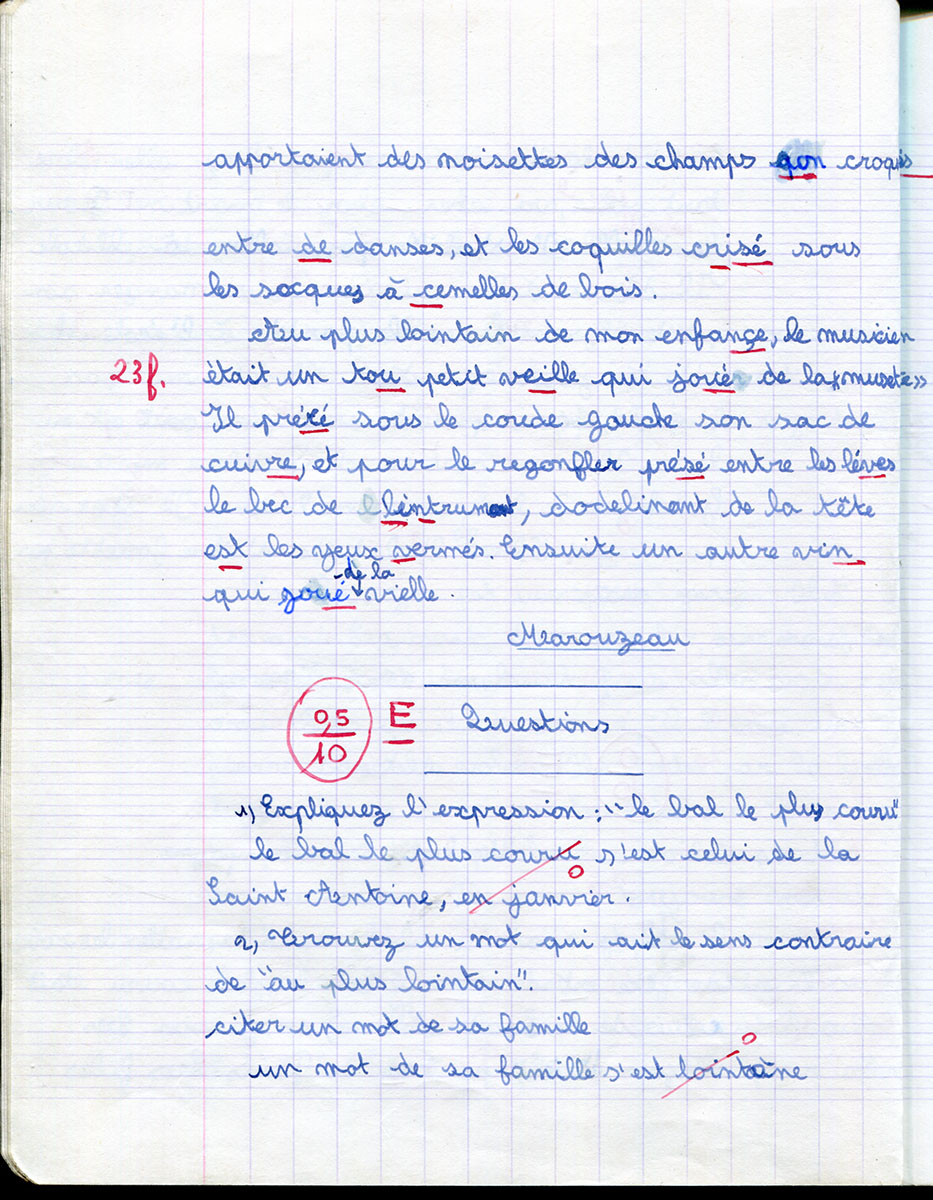 apportaient des noisettes des champs qon croquis
entre de danses, et les coquilles crisé sous
les socques à cemelles de bois.
Au plus lointain de mon enfançe, le musicien
23f. était un tou petit veille qui joué de la «musete»
Il préré sous le coude gauche son sac de
cuivre, et pour le regonfler présé entre les léves
le bec de l'intrument, dodelinant de la tête
est les yeux vermés. Ensuite un autre vin
qui joué de la vielle.
Marouzeau
0,5/10 E Questions
1) Expliquez l'expression : "le bal le plus couru"
le bal le plus couru s'est celui de la
0
Saint Antoine, en janvier.
2) Trouvez un mot qui ait le sens contraire
de "au plus lointain".
citer un mot de sa famille
0
un mot de sa famille s'est lointaine